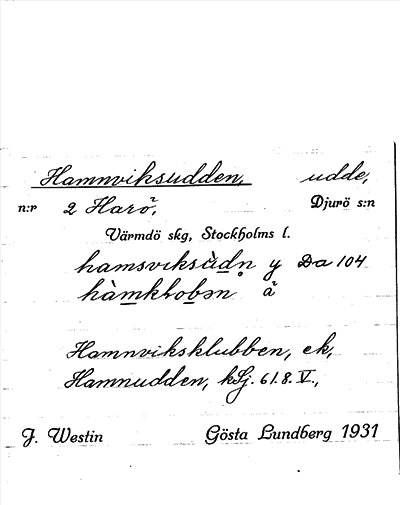 Hamnviksudden, udde,
n:r 2 Harö, Djurö s:n
Värmdö skg, Stockholms l.
hamsviksùdn y Da 104
hàmklobən å
Hamnviksklubben, ek,
Hamnudden, kSj. 61.8.V.,
J. Westin Gösta Lundberg 1931